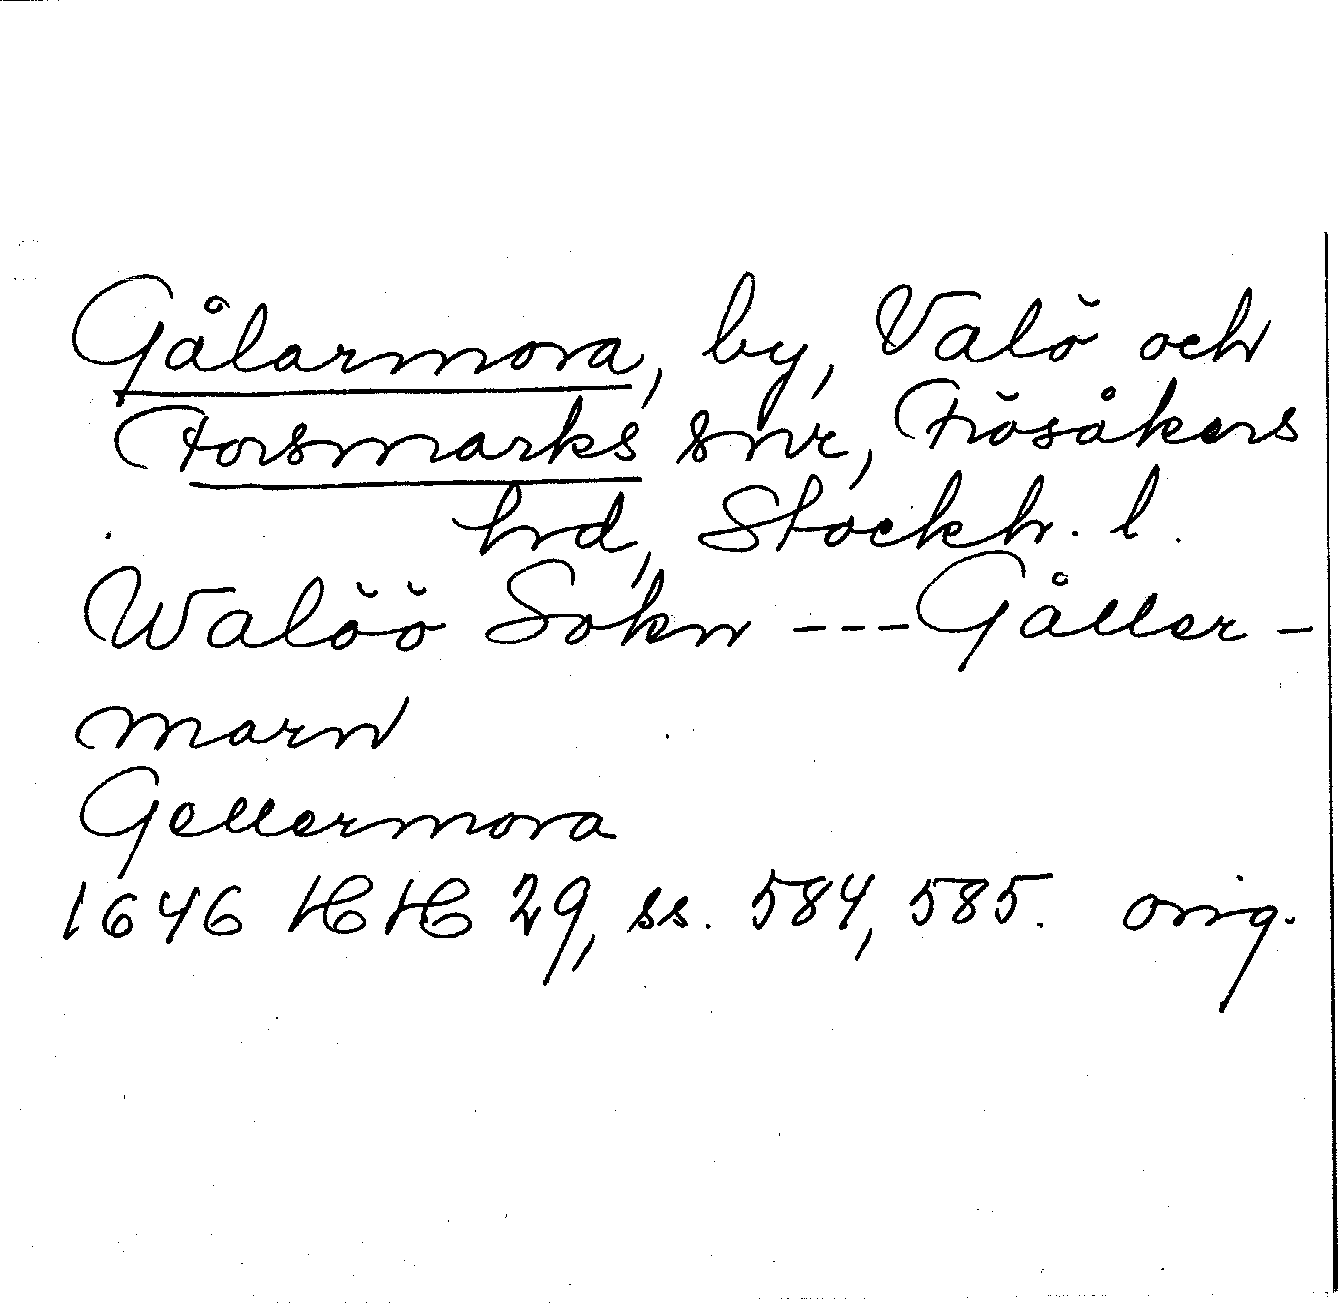 Gålarmora, by, Valö och
Forsmarks snr, Frösåkers
hrd, Stockh. l.
Walöö Sokn --- Gåller-
marn
Gellermora
1646 HH 29, ss. 584, 585. orig.